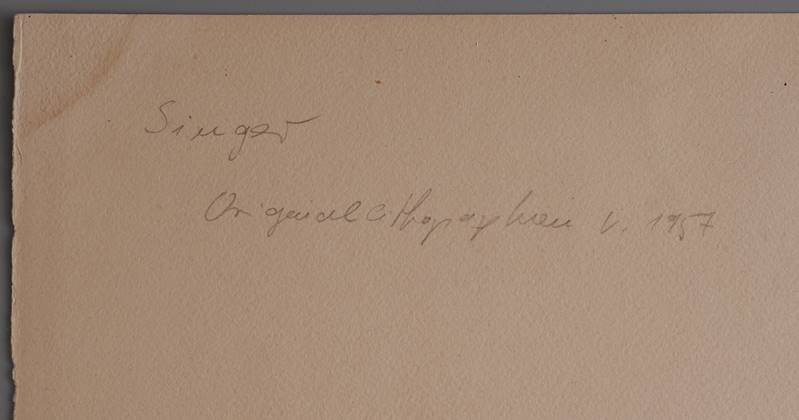 Singer
Originallithographien v. 1957